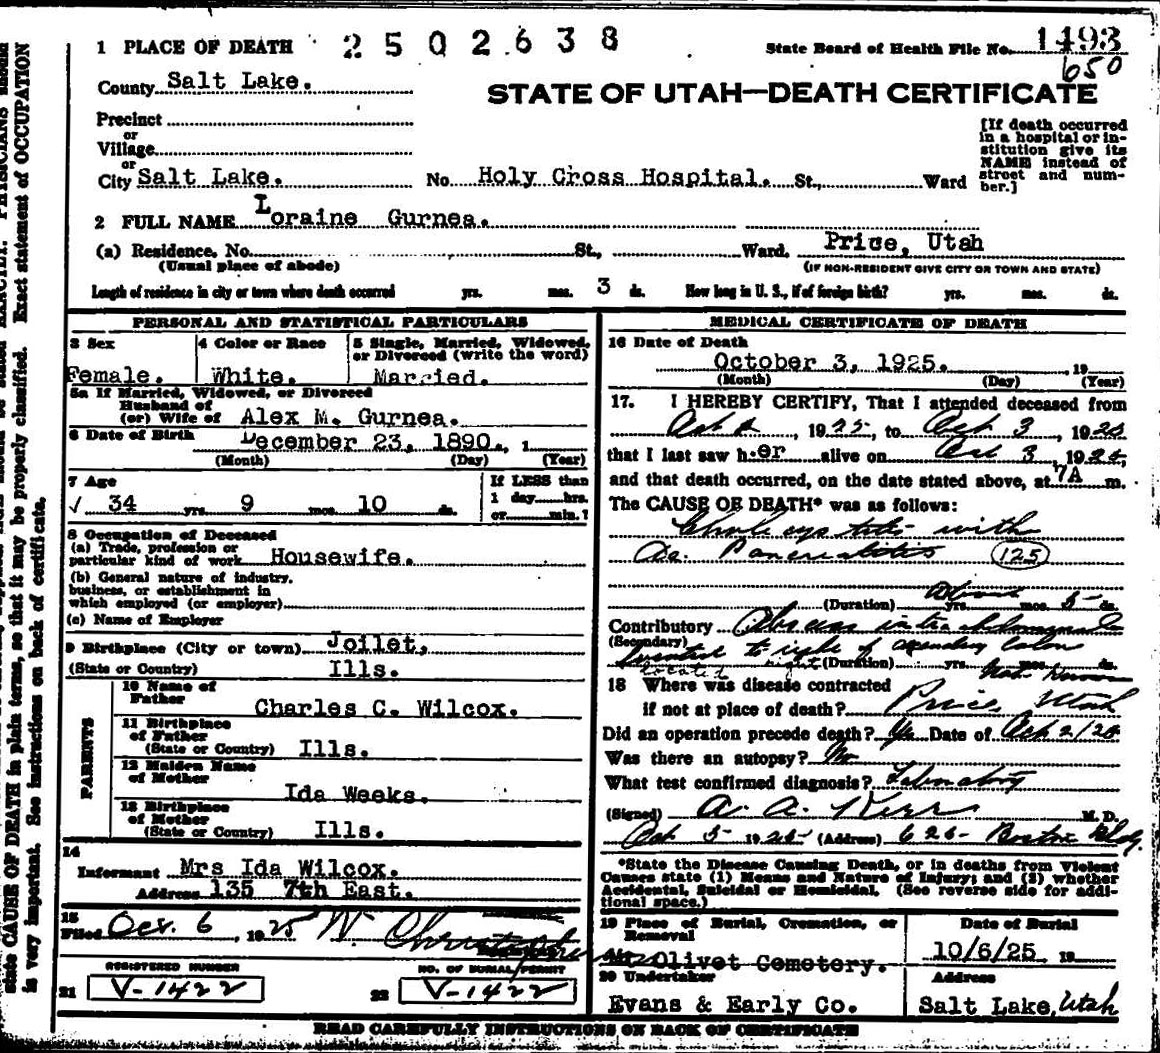 1 PLACE OF DEATH 2502638 State Board of Health File No. 1493
650
County Salt Lake.
STATE OF UTAH—DEATH CERTIFICATE
Precinct
or
Village
or
City Salt Lake. No. Holy Cross Hospital. St., Ward
[If death occurred
in a hospital or in-
stitution give its
NAME instead of
street and num-
ber.]
2 FULL NAME Loraine Gurnea.
(a) Residence, No. St., Ward, Price, Utah
(Usual place of abode) (IF NON-RESIDENT GIVE CITY OR TOWN AND STATE)
Length of residence in city or town where death occurred yrs. mos. 3 ds. How long in U. S., if of foreign birth? yrs. mos. ds.
PERSONAL AND STATISTICAL PARTICULARS
3 Sex
Female.
4 Color or Race
White.
5 Single, Married, Widowed,
or Divorced (write the word)
Married.
5a If Married, Widowed, or Divorced
Husband of
(or) Wife of Alex M. Gurnea.
6 Date of Birth December 23, 1890. , 1
(Month) (Day) (Year)
7 Age
34 yrs. 9 mos. 10 ds.
If LESS than
1 day hrs.
or min.?
8 Occupation of Deceased
(a) Trade, profession or
particular kind of work Housewife.
(b) General nature of industry,
business, or establishment in
which employed (or employer)
(c) Name of Employer
9 Birthplace (City or town) Joilet,
(State or Country) Ills.
PARENTS
10 Name of
Father Charles C. Wilcox.
11 Birthplace
of Father
(State or Country) Ills.
12 Maiden Name
of Mother Ida Weeks.
13 Birthplace
of Mother
(State or Country) Ills.
14
Informant Mrs Ida Wilcox.
Address 135 7th East.
15
Filed Oct. 6, 1925
REGISTERED NUMBER
21 V-1422
NO. OF BURIAL PERMIT
22 V-1422
MEDICAL CERTIFICATE OF DEATH
16 Date of Death
October 3, 1925. , 19
(Month) (Day) (Year)
17. I HEREBY CERTIFY, That I attended deceased from
Oct 2, 1925, to Oct 3, 1925
that I last saw her alive on Oct 3, 1925,
and that death occurred, on the date stated above, at 7A m.
The CAUSE OF DEATH* was as follows:
Cholecystitis with
Ac. Pancreatitis (125)
(Duration) About yrs. mos. 5 ds.
Contributory Abscess intra abdominal
(Secondary) located to right of ascending colon
located right (Duration) yrs. mos. ds. Not Known
18 Where was disease contracted
if not at place of death? Price, Utah
Did an operation precede death? Yes Date of Oct 2/25
Was there an autopsy? No
What test confirmed diagnosis? Laboratory
(Signed) A. A. Kerr M. D.
Oct 5 1925 (Address) 625 Boston Bldg.
*State the Disease Causing Death, or in deaths from Violent
Causes state (1) Means and Nature of Injury; and (2) whether
Accidental, Suicidal or Homicidal. (See reverse side for addi-
tional space.)
19 Place of Burial, Cremation, or
Removal
Mt. Olivet Cemetery.
Date of Burial
10/6/25 19
20 Undertaker
Evans & Early Co.
Address
Salt Lake, Utah
READ CAREFULLY INSTRUCTIONS ON BACK OF CERTIFICATE
state CAUSE OF DEATH in plain terms, so that it may be properly classified. Exact statement of OCCUPATION
is very important. See instructions on back of certificate.